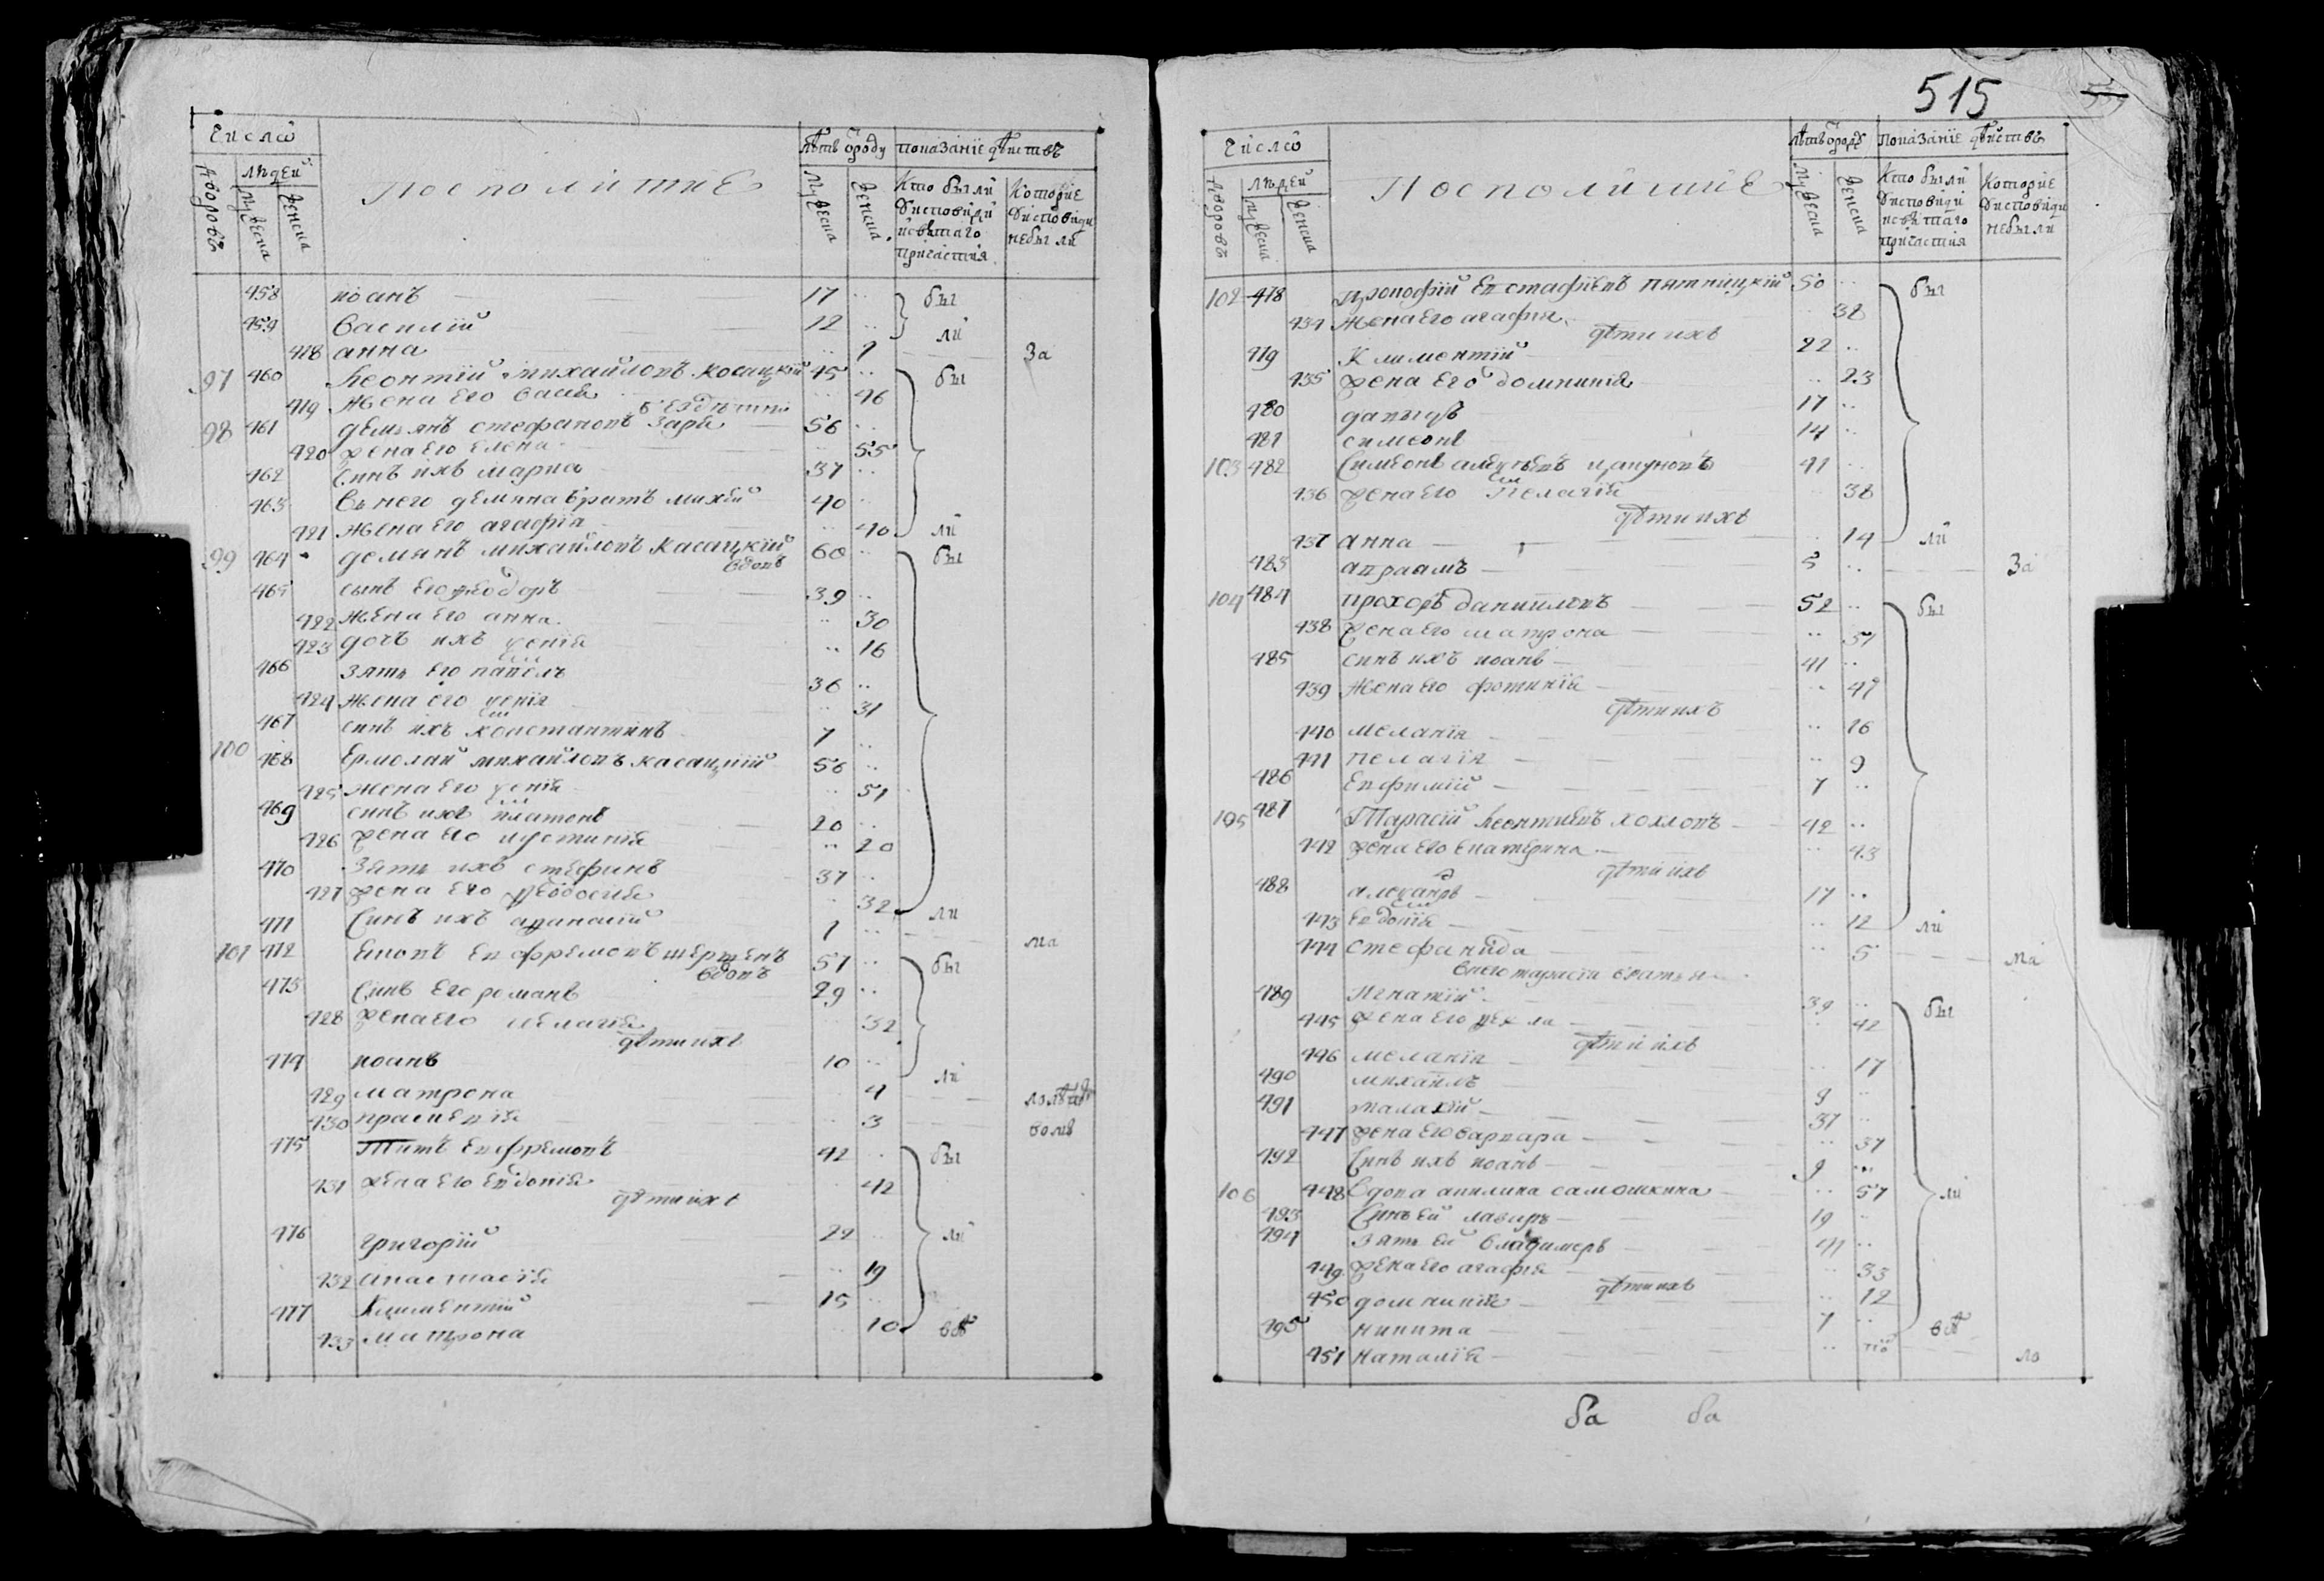 Число
дворовъ
людей
мужеска
женска
Посполитие
лѣтъ ѿ роду
мужеска
женска
показание дѣиствъ
Кто были ѹ исповѣди и свѧтаго причастия
Которие ѹ исповѣди небыли
458 иоанъ 17 бы
459 Василий 12 ли
418 анна 1 За
97 460 Леонтий михайловъ Косацкий 45 бы
419 жена его Васса 46
бездетни
98 461 демянъ стефановъ Заря 56
420 жена его елена 55
462 Синъ ихъ марко 37
463 Въ него демяна братъ михей 40
421 жена его агафия 40 ли
99 464 демянъ михайловъ Касацкий 60 бы
вдовъ
465 сынъ его феодоръ 39
422 жена его анна 30
423 дочъ ихъ ѯения 16
466 Зять его павелъ 36
424 жена его ѯения 31
467 синъ ихъ константинъ 7
100 468 Ермолай михайловъ касацкий 56
425 жена его ѯения 51
469 синъ ихъ платонъ 20
426 жена его иустиния 20
470 Зять ихъ стефанъ 37
427 жена его феодосия 32 ли
471 Синъ ихъ афанасий 1 ла
101 472 Еновъ Евфремовъ шершенъ 57 бы
вдовъ
473 Синъ его романъ 29
428 жена его пелагия 32
дѣти ихъ
474 иоанъ 10 ли
429 матрона 4
430 праскевия 3
475 Титъ Евфремовъ 42 бы
431 жена его Евдокия 42
дѣти ихъ
476 григорий 22 ли
432 анастасия 19
477 Климентий 15
433 матрона 10 всѣ
515
Число
дворовъ
людей
мужеска
женска
Посполитие
лѣтъ ѿ роду
мужеска
женска
Показание дѣиствъ
Кто были ѹ исповѣди и свѧтаго причастия
Которие ѹ исповѣди небыли
102 478 Прокофий Евстафиевъ пятницкий 50 бы
434 жена его агафия 38
дѣти ихъ
479 Климентий 22
435 жена его домникия 23
480 давидъ 17
481 симеонъ 14
103 482 Симеонъ алеѯѣевъ цапуновъ 41
436 жена его Пелагия 38
дѣти ихъ
437 анна 14 ли
483 авраамъ 5 За
104 484 прохоръ даниловъ 52 бы
438 жена его матрона 51
485 синъ ихъ иоанъ 41
439 жена его фотиния 41
дѣти ихъ
440 мелания 16
441 пелагия 9
486 Евфимий 7
105 487 Тарасий Леонтиевъ хохловъ 42
442 жена его екатерина 43
дѣти ихъ
488 алеѯандръ 17
443 Евдокия 12 ли
444 стефанида 5 ла
Внего тарасия братья
489 Игнатий 39 бы
445 жена его фекла 42
дѣти ихъ
446 мелания 17
490 михаилъ 9
491 малахий 37
447 жена его варвара 37
492 Синъ ихъ иоанъ 9
106 448 Вдова акилина самошкина 57 ли
493 Синъ ей лазаръ 19
494 Зять ей владимеръ 41
449 жена его агафия 33
дѣти ихъ
450 домникия 12
495 никита 7 всѣ
451 Наталия ло
ба ба